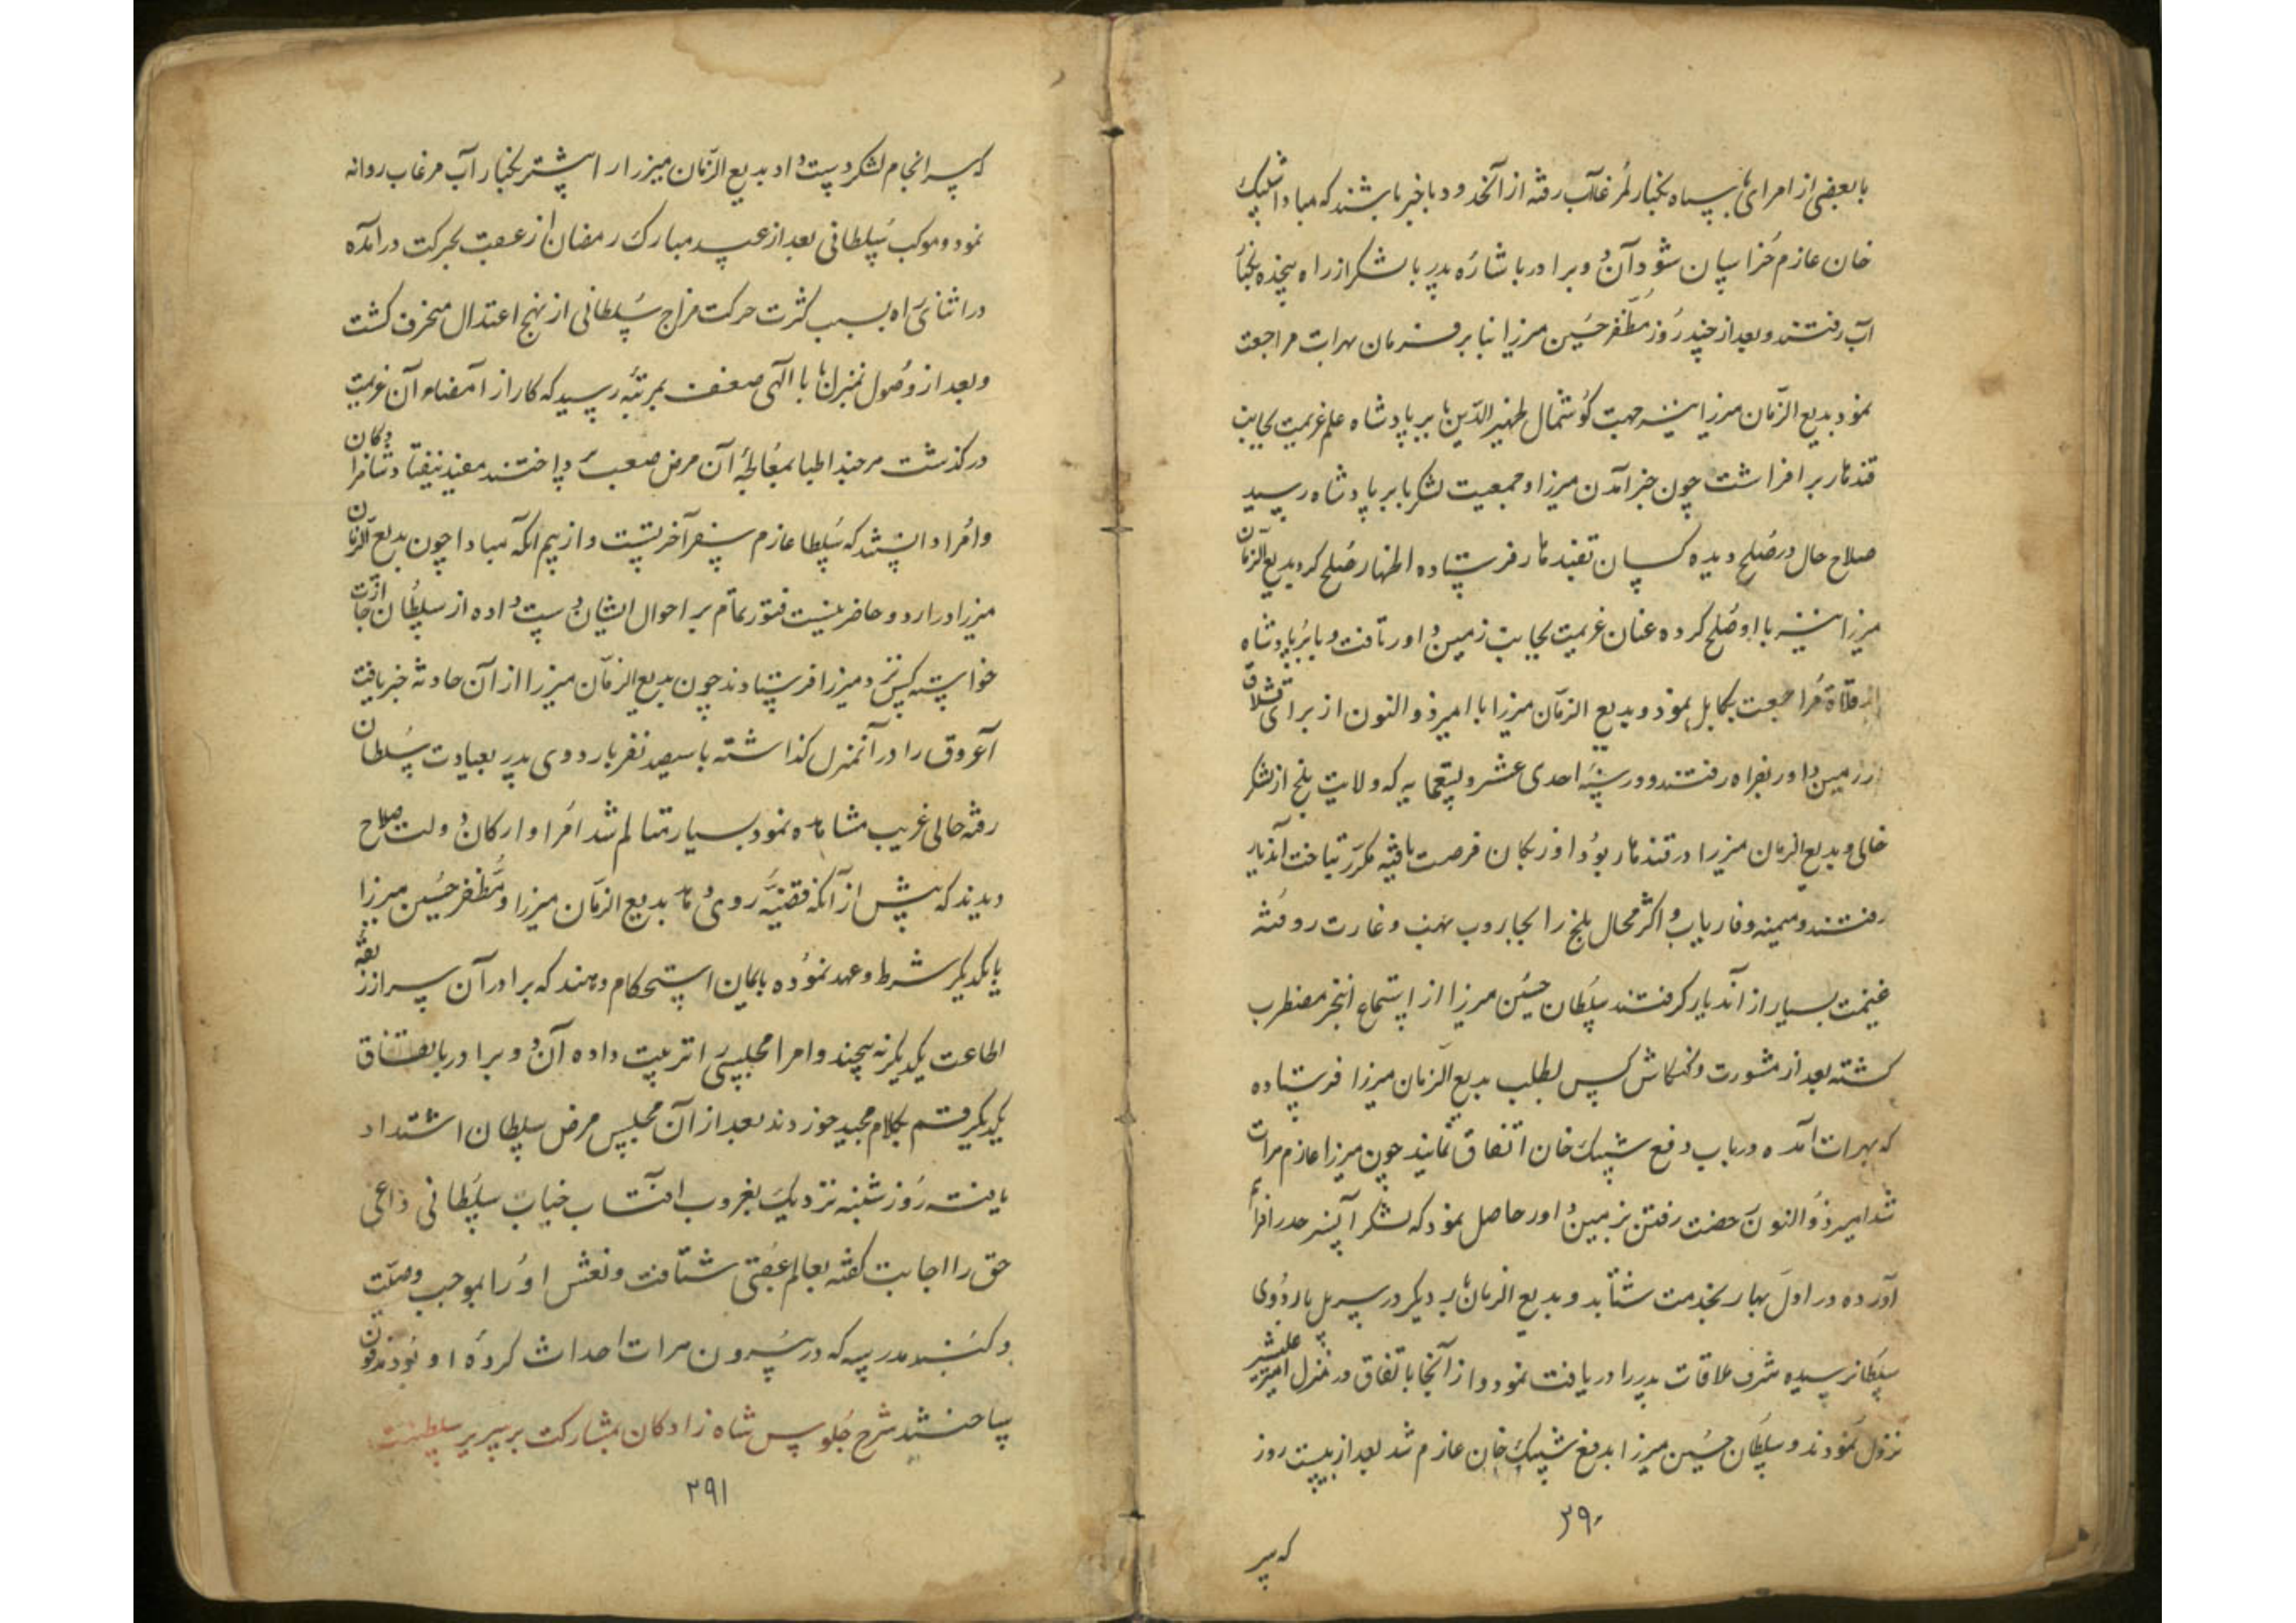 با بعضی از امرای سپاه بکنار مرغاب رفته از آنحدود با خبر باشند که مبادا شیبک
خان عازم خراسان شود آن دو برادر باشاره پدر با لشکر از راه پنجده بکنار
آب رفتند و بعد از چند روز مظفر حسین میرزا بنا بر فرمان بهرات مراجعت
نمود بدیع الزمان میرزا نیز جهت گوشمال ظهیرالدین بابر پادشاه علم عزیمت بجانب
قندهار برافراشت چون خبر آمدن میرزا و جمعیت لشکر بابر پادشاه رسید
صلاح حال در صلح دیده کسان بقندهار فرستاده اظهار صلح کرد بدیع الزمان
میرزا نیز با او صلح کرده عنان عزیمت بجانب زمین داور تافت و بابر پادشاه
از قلاة مراجعت بکابل نمود و بدیع الزمان میرزا با امیر ذوالنون از برای قشلاق
از زمین داور بفراه رفتند و در سنه احدی عشر و تسعمایه که ولایت بلخ از لشکر
خالی و بدیع الزمان میرزا در قندهار بود اوزبکان فرصت یافته مکرر بتاخت آندیار
رفتند و میمنه و فاریاب و اکثر محال بلخ را بجاروب نهب و غارت روفته
غنیمت بسیار از آندیار گرفتند سلطان حسین میرزا از استماع اینخبر مضطرب
گشته بعد از مشورت و کنکاش کس بطلب بدیع الزمان میرزا فرستاده
که بهرات آمده در باب دفع شیبک خان اتفاق نمایند چون میرزا عازم هرات
شد امیر ذوالنون رخصت رفتن بزمین داور حاصل نمود که لشکر آنسرحد را فراهم
آورده در اول بهار بخدمت شتابد و بدیع الزمان در سر پل باردوی
سلطان رسیده شرف ملاقات پدر را دریافت نمود و از آنجا باتفاق در منزل امیر علیشیر
نزول نمودند و سلطان حسین میرزا بدفع شیبک خان عازم شد بعد از بیست روز
۳۹۰
که سر
که سرانجام لشکر دست داد بدیع الزمان میرزا را پیشتر بکنار آب مرغاب روانه
نمود و موکب سلطانی بعد از عید مبارک رمضان از عقب بحرکت درآمده
در اثنای راه بسبب کثرت حرکت مزاج سلطانی از نهج اعتدال منحرف گشت
و بعد از وصول بمنزل بابا الهی ضعف بمرتبه رسید که کار از امضاء آن عزیمت
درگذشت هر چند اطبا بمعالجه آن مرض صعب پرداختند مفید نیفتاد شاهزادگان
و امرا دانستند که سلطان عازم سفر آخرتست و از بیم آنکه مبادا چون بدیع الزمان
میرزا در اردو حاضر نیست فتور تمام بر احوال ایشان دست داده از سلطان اجازت
خواسته کس نزد میرزا فرستادند چون بدیع الزمان میرزا از آن حادثه خبر یافت
آغروق را در آنمنزل گذاشته با سیصد نفر باردوی پدر بعیادت سلطان
رفته حالی غریب مشاهده نمود بسیار متألم شد امرا و ارکان دولت صلاح
دیدند که پیش از آنکه قضیه روی دهد بدیع الزمان میرزا و مظفر حسین میرزا
با یکدیگر شرط و عهد نموده بایمان استحکام دهند که برادران سر از ربقه
اطاعت یکدیگر نه پیچند و امرا مجلسی را ترتیب داده آن دو برادر باتفاق
یکدیگر قسم بکلام مجید خوردند بعد از آن مجلس مرض سلطان اشتداد
یافت روز شنبه نزدیک بغروب افتاب جناب سلطانی داعی
حق را اجابت گفته بعالم عقبی شتافت و نعش او را بموجب وصیت
در گنبد مدرسه که در بیرون هرات احداث کرده او بود مدفون
ساختند شرح جلوس شاه زادگان بمشارکت بر سریر سلطنت
۳۹۱